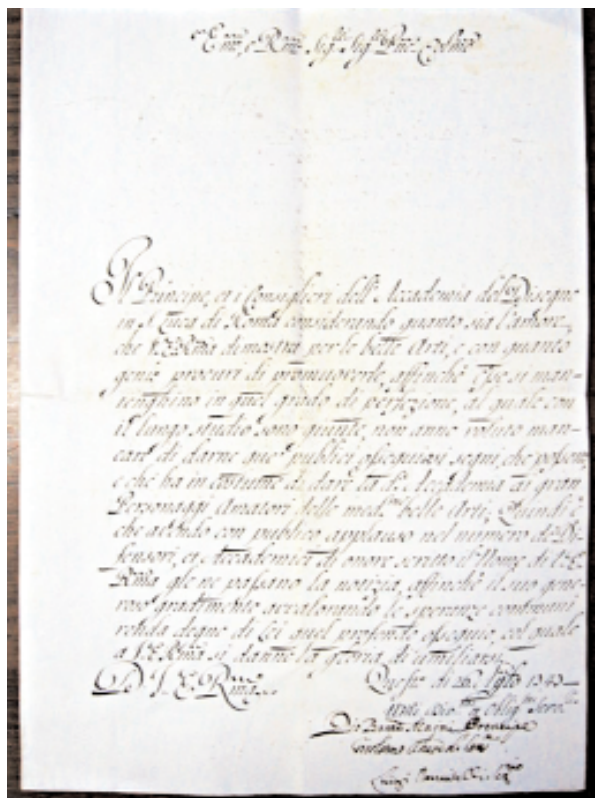 Em.mo, e R.mo Sig.r Sig.r P.ne Col.mo
Il Principe, et i Consiglieri dell'Accademia del Disegno
in S. Luca di Roma considerando quanto sia l'amore,
che V. E. R.ma dimostra per le belle Arti, e con quanto
genio procuri di promuoverle, affinchè esse si man-
tenghino in quel grado di perfezione, al quale con
il lungo studio sono giunte, non anno voluto man-
care di darne que' publici ossequiosi segni, che possono,
e che ha in costume di dare la d.a Accademia ai gran
Personaggi Amatori delle med.me belle Arti. Quindi è
che avendo con publico applauso nel numero de Di-
fensori, et Accademici di onore scritto il Nome di V. E.
R.ma gle ne passano la notizia, affinchè il suo gene-
roso gradimento avvalorando le speranze communi
renda degno di Lei quel profondo ossequio, col quale
a V. E. R.ma si danno la gloria di umiliarsi.
Di V. E. R.ma
Questo di 26 Luglio 1743
Umi Di.mi Oblig.mi Serv.ri
Principe